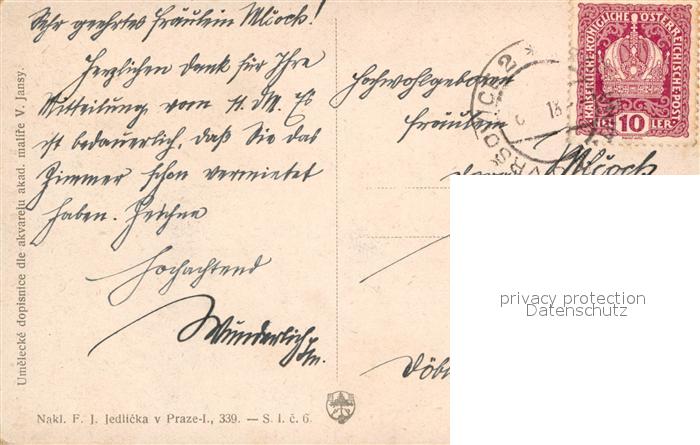 Sehr geehrtes Fräulein Mlcoch!
Herzlichen Dank für Ihre
Mitteilung vom 11. d.M. Es
ist bedauerlich, daß Sie das
Zimmer schon vermietet
haben. Zeichne
Hochachtend
Wunderlich
Hochwohlgeboren
Fräulein
Mlcoch
Döb
KAISERLICHE KÖNIGLICHE ÖSTERREICHISCHE POST
10
VRŠOVICE 2
Umělecké dopisnice dle akvarelu akad. malíře V. Jansy.
Nakl. F. J. Jedlička v Praze-I., 339. — S. I. č. 6.
privacy protection
Datenschutz